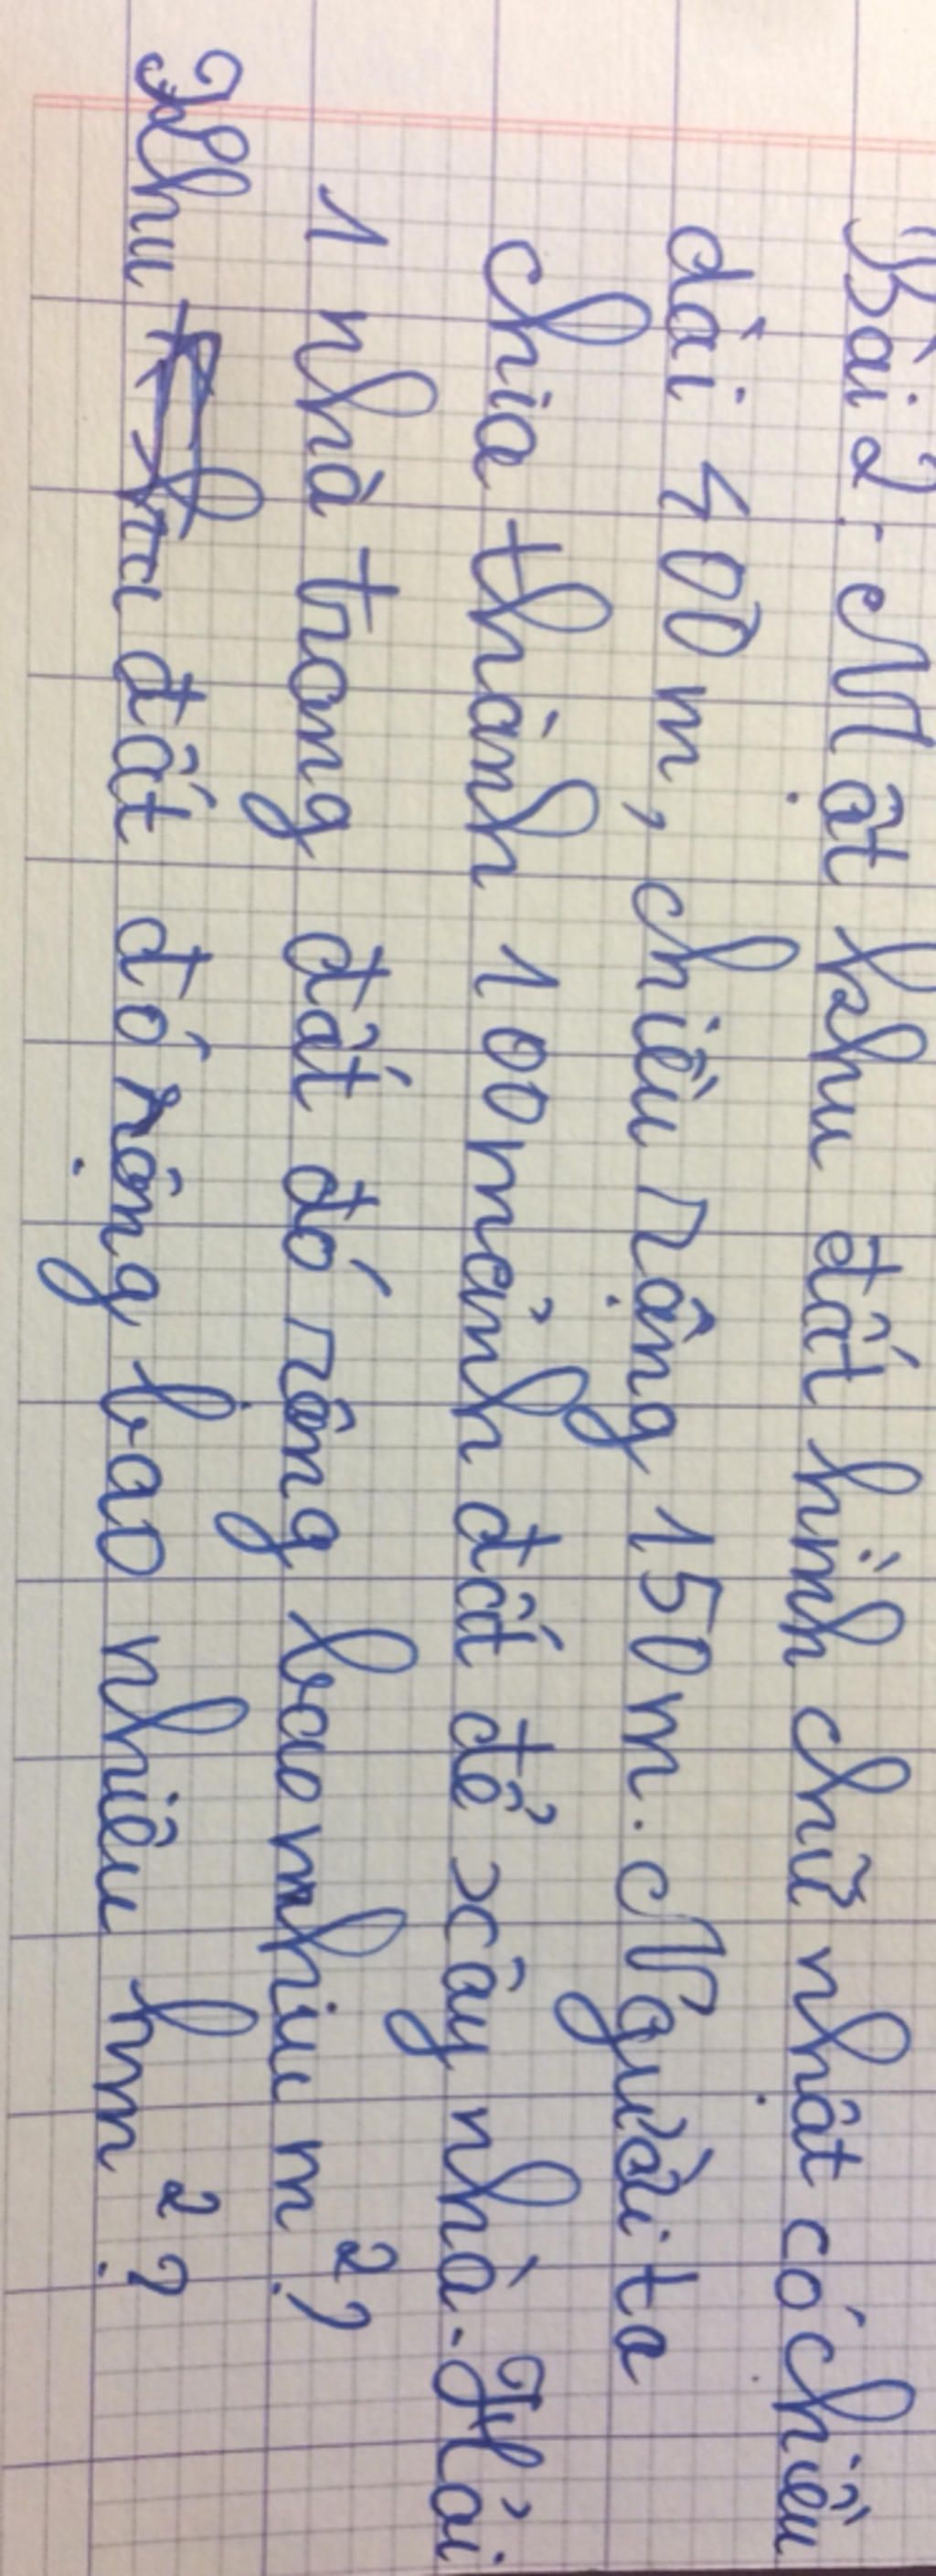 Bài 2: Một khu đất hình chữ nhật có chiều
dài 400m, chiều rộng 150m. Người ta
chia thành 100 mảnh đất để xây nhà. Hỏi
1 nhà trong đất đó rộng bao nhiu m²?
Khu đất đó rộng bao nhiêu hm²?